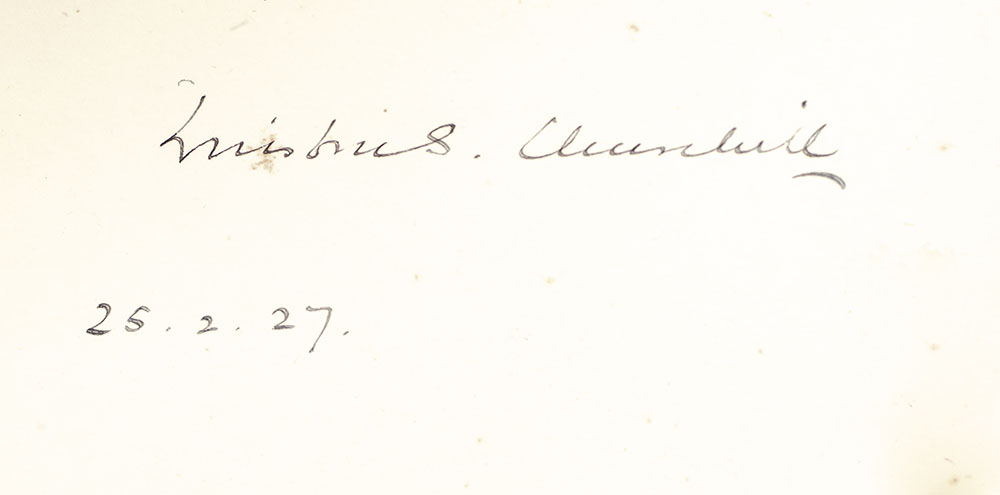 Winston S. Churchill
25.2.27.